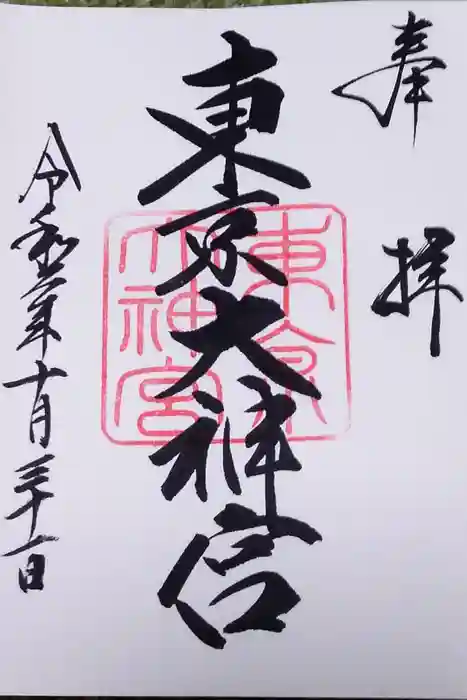 奉拝
東京大神宮
東京
大神宮
令和 年十月三十一日